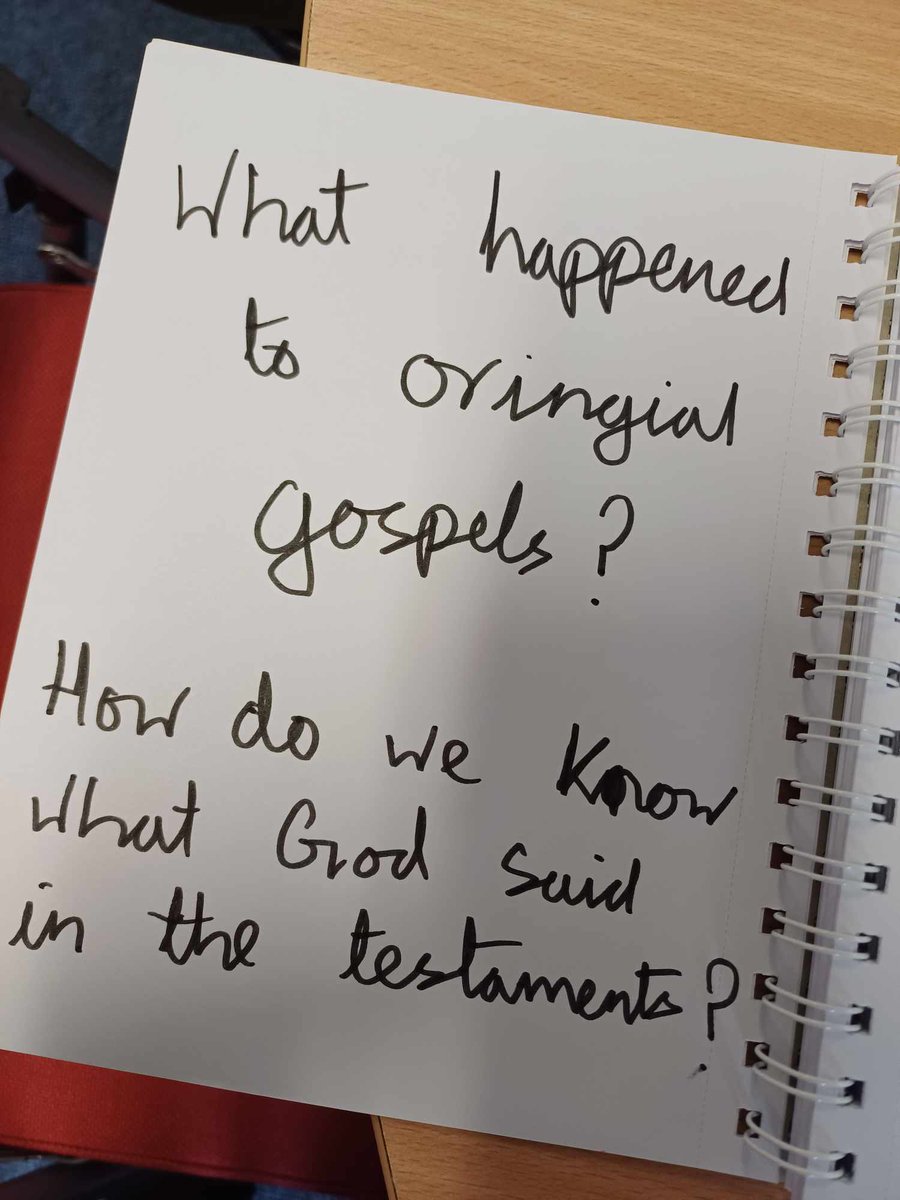 What happened
to oringial
gospels?
How do we know
what God said
in the testaments?